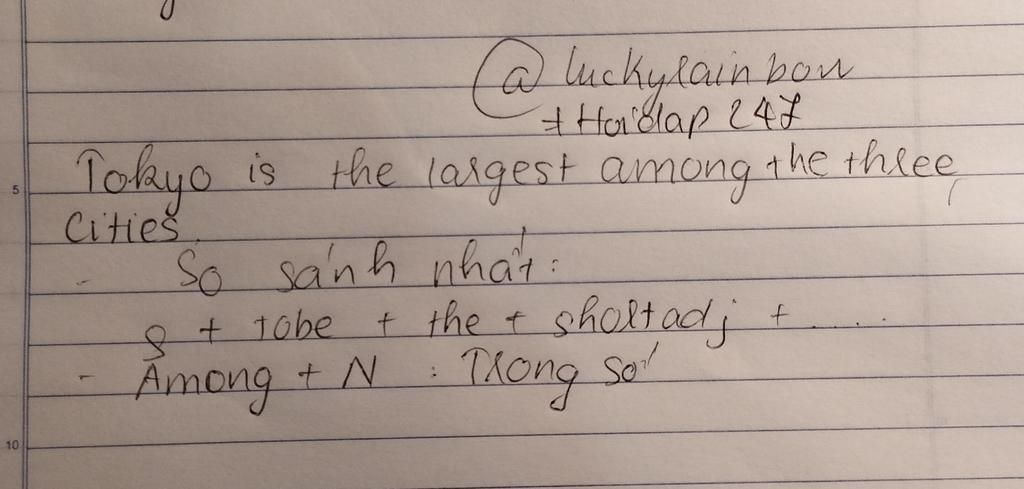 @ luckyrainbow
# Hoidap 247
Tokyo is the largest among the three
cities.
- So sánh nhất:
S + tobe + the + short adj + .....
- Among + N : Trong số
5
10